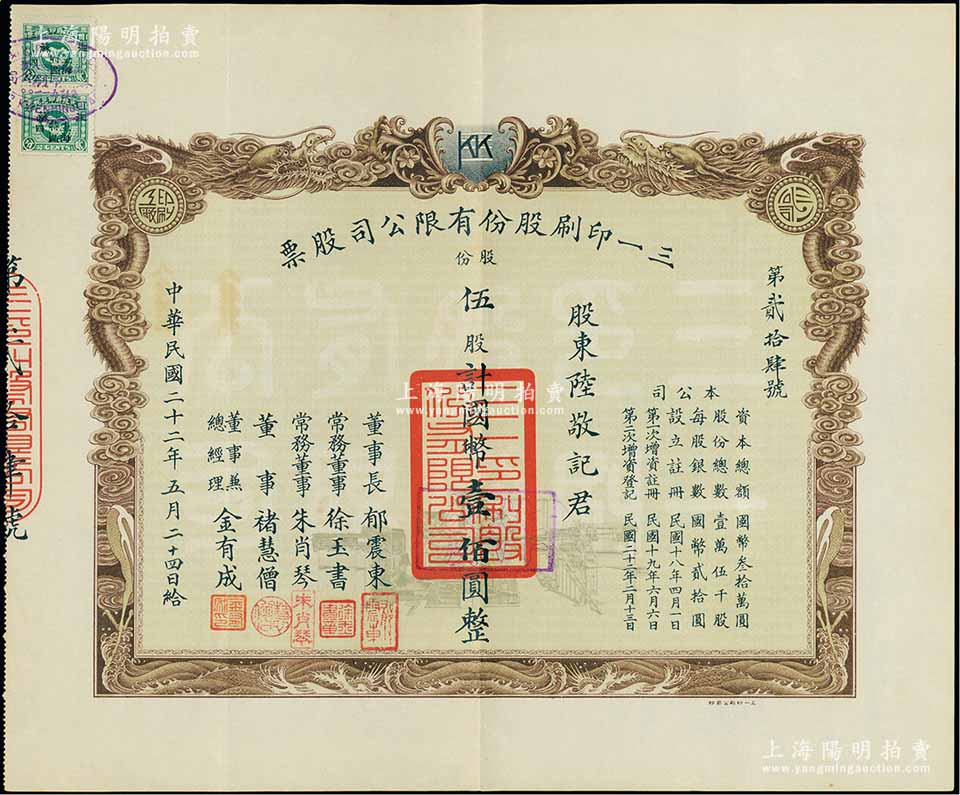 上海陽明拍賣
www.yangmingauction.com
CENTS
KK
三一印刷股份有限公司股票
第貳拾肆號
本公司
資本總額 國幣叁拾萬圓
股份總數 壹萬伍千股
每股銀數 國幣貳拾圓
設立註冊 民國十八年四月一日
第一次增資註冊 民國十九年六月六日
第二次增資登記 民國二十二年二月十三日
股東陸敬記君
股份
伍股計國幣壹佰圓整
董事長 郁震東
常務董事 徐玉書
常務董事 朱肖琴
朱肖琴
董事 褚慧僧
董事兼總經理 金有成
中華民國二十二年五月二十四日給
上海陽明拍賣
www.yangmingauction.com
上海陽明拍賣
www.yangmingauction.com